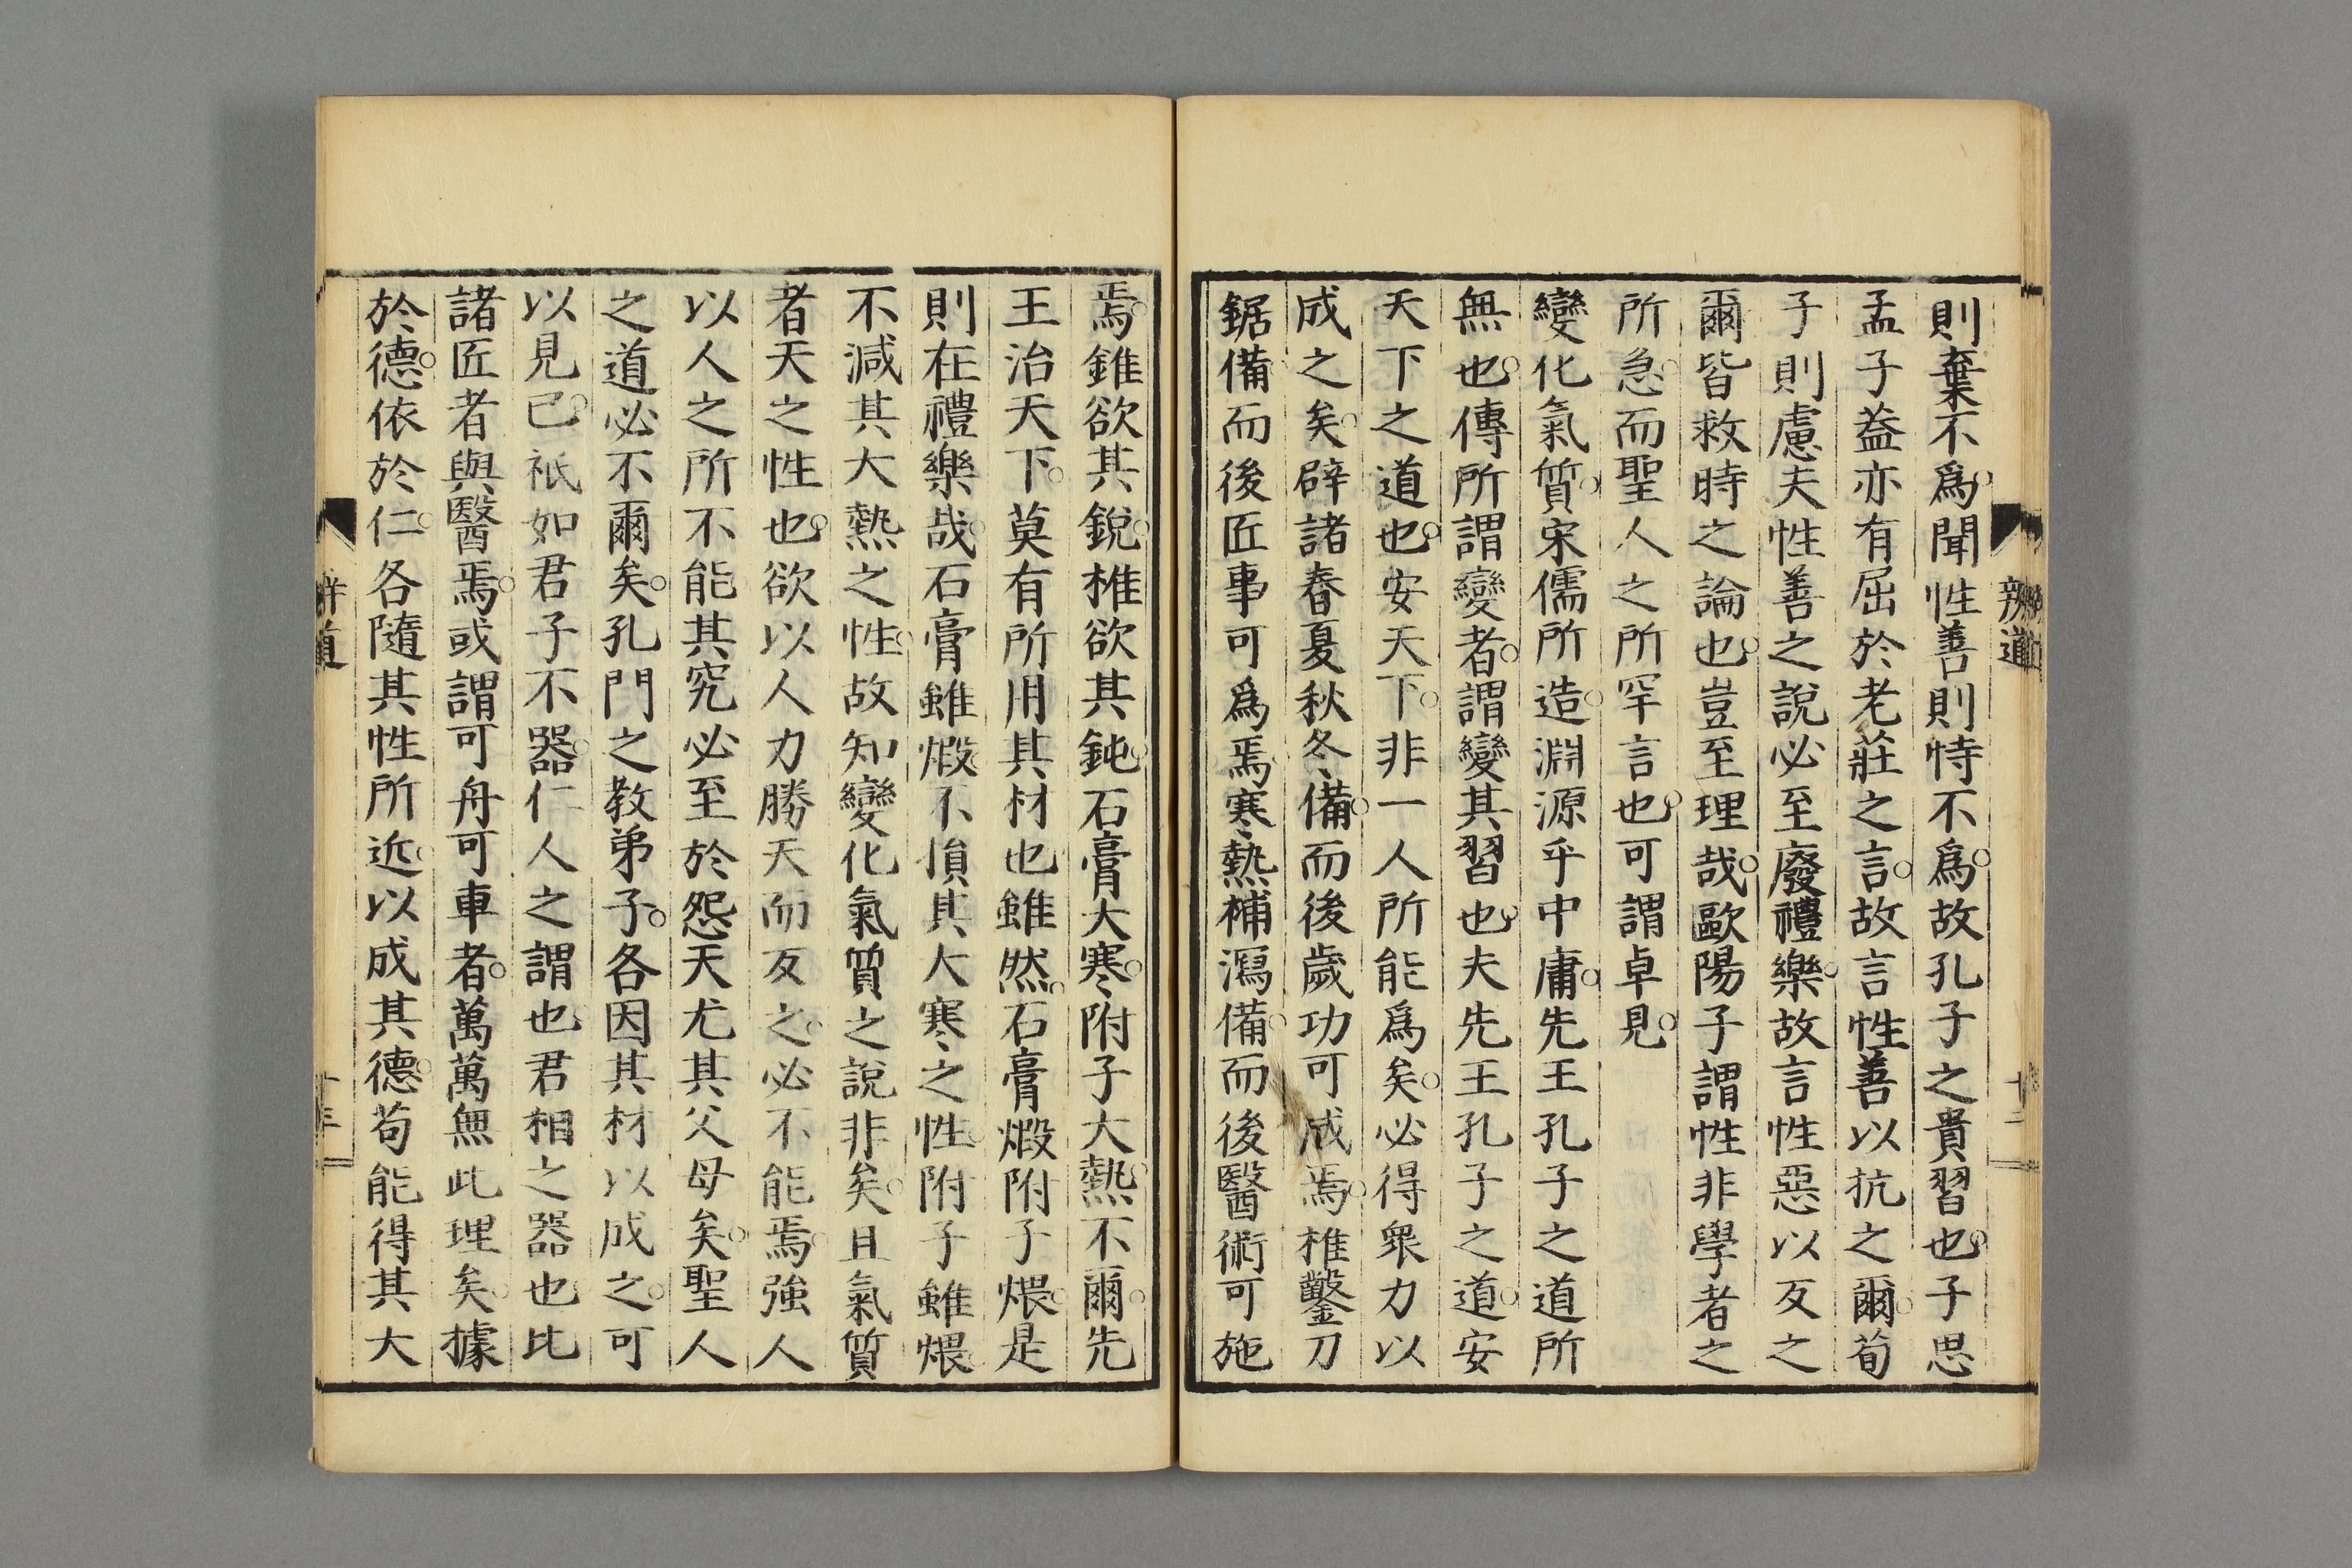 則棄不爲。聞性善則恃不爲。故孔子之貴習也。子思
孟子葢亦有屈於老莊之言。故言性善以抗之爾。荀
子則慮夫性善之說必至廢禮樂。故言性惡以反之
爾皆救時之論也。豈至理哉。歐陽子謂性非學者之
所急。而聖人之所罕言也。可謂卓見。
變化氣質。宋儒所造。淵源乎中庸。先王孔子之道所
無也。傳所謂變者。謂變其習也。夫先王孔子之道。安
天下之道也。安天下。非一人所能爲矣。必得衆力以
成之矣。辟諸春夏秋冬備。而後歲功可成焉。椎鑿刀
鋸備。而後匠事可爲焉。寒熱補瀉備。而後醫術可施
焉。錐欲其銳。椎欲其鈍。石膏大寒。附子大熱。不爾。先
王治天下。莫有所用其材也雖然。石膏煅附子煨。是
則在禮樂哉。石膏雖煅。不損其大寒之性。附子雖煨。
不減其大熱之性。故知變化氣質之說非矣。且氣質
者天之性也。欲以人力勝天而反之。必不能焉。強人
以人之所不能其究必至於怨天尤其父母矣。聖人
之道必不爾矣。孔門之教弟子。各因其材以成之。可
以見已。祇如君子不器。仁人之謂也。君相之器也。比
諸匠者與醫焉。或謂可舟可車者。萬萬無此理矣。據
於德。依於仁。各隨其性所近。以成其德。苟能得其大
辨道
十二